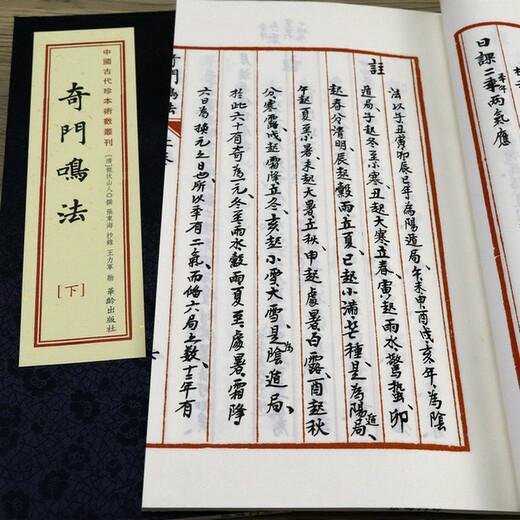 日課二
兩氣應
註
法以子丑寅卯辰巳年為陽遁局、午未申酉戌亥年、為陰
遁局、子起冬至小寒、丑起大寒立春、寅起雨水、驚蟄、卯
起春分清明、辰起穀雨立夏、巳起小滿、芒種、是為陽遁局、
午起夏至小暑、未起大暑立秋、申起處暑白露、酉起秋
分寒露、戌起霜降立冬、亥起小雪大雪、是為陰遁局、
於此六十有奇為元、冬至雨水穀雨夏至、處暑、霜降
六日為換元之日也、所以年有二氣、而備六局之數、十二年有
奇門鳴法
中國古代珍本術數叢刊
奇門鳴法
[清]龍伏山人◎撰 張東海 抄錄 王力軍 華齡出版社
[下]